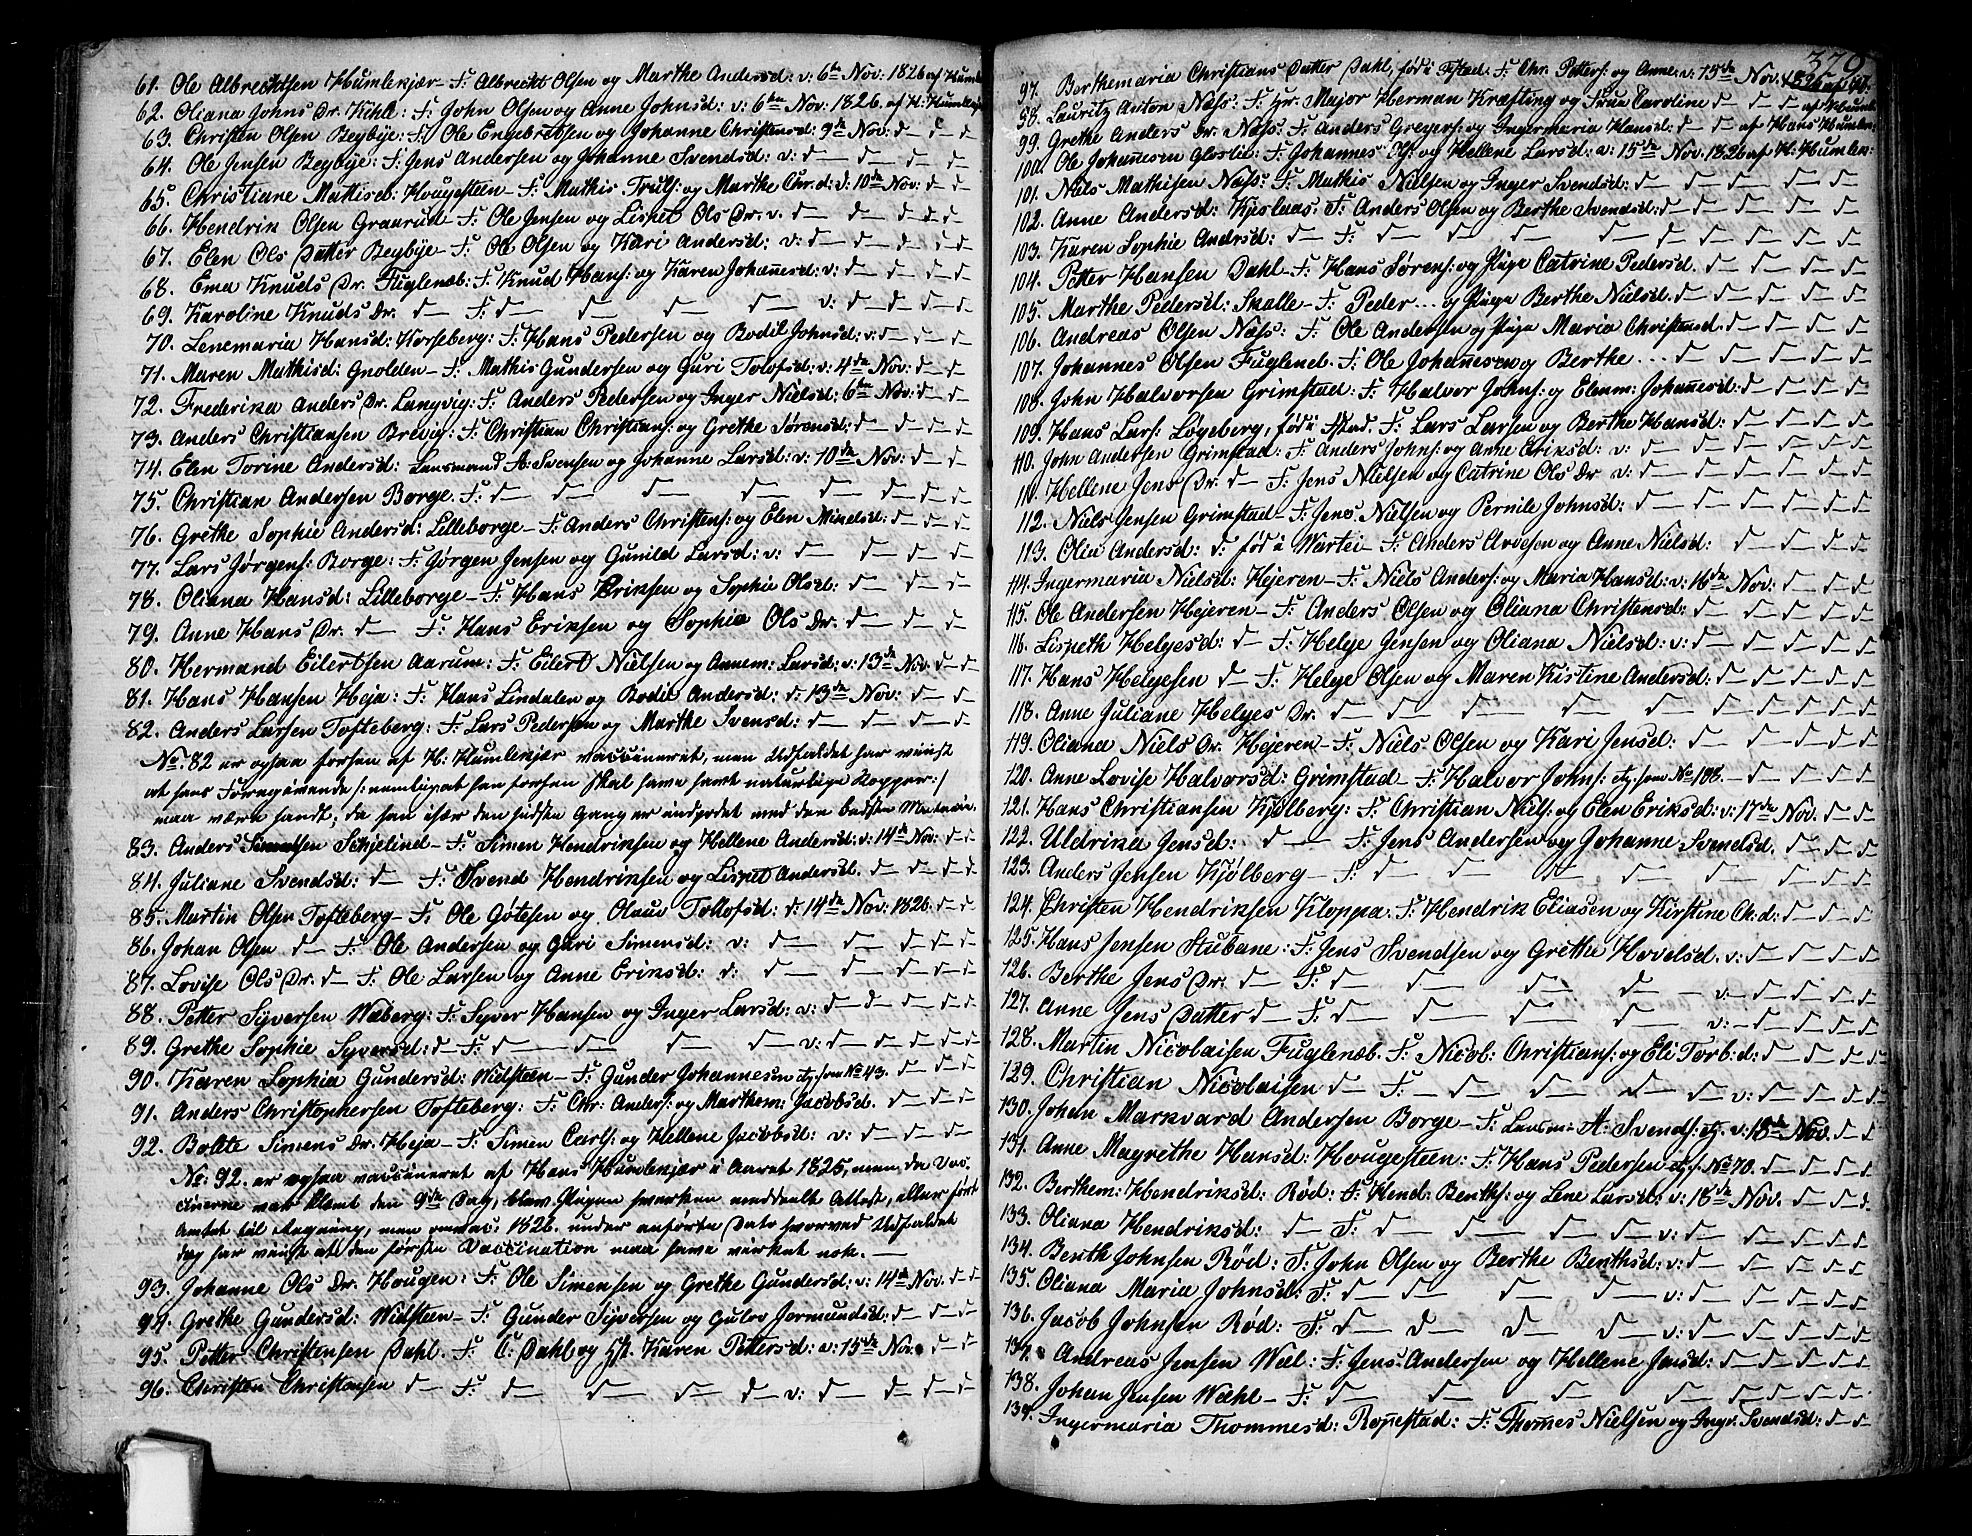 61. Ole Albrechtsen Humlekjær – F: Albrecht Olsen og Marthe Andersd: v: 6te Nov: 1826 af Humle
62. Oliana Johns Dr. Kihle: F: John Olsen og Anne Johnsd: v: 6te Nov: 1826. af H: Humlekj:
63. Christen Olsen Begbye: F: Ole Engebretsen og Johanne Christensd: 9de Nov: d– d d
64. Ole Jensen Begbye: F: Jens Andersen og Johanne Svendsd: v: d– d– d– d–
65. Christiane Mathisd: Hougesteen – F: Mathis Truls: og Marthe Chr.d: d: 10de Nov: d– d–
66. Hendrik Olsen Graarud – F: Ole Jensen og Lispet Ols Dr. v. d– d– d– d– d–
67. Elen Ols Datter Begbye – F: Ole Olsen og Kari Andersd: v: d– d– d– d– d–
68. Ema Knuds Dr. Fuglenæb: F: Knud Hans: og Karen Johañesd: v: d– d– d– d–
69. Karoline Knuds Dr. d– F: d– d– d– d– v: d– d– d– d–
70. Lenemaria Hansd: Korseberg: F: Hans Pedersen og Bodil Johnsd: v: d– d– d– d–
71. Maren Mathisd: Gnolden – F: Mathis Gundersen og Guri Tolofsd: v: 4de Nov: d– d–
72. Frederika Anders Dr. Langvig: F: Anders Pedersen og Inger Nielsd: 6te Nov: d– d–
73. Anders Christiansen Brevig: F: Christian Christians: og Grethe Sørensd: d– d– d– d–
74. Elen Torine Andersd: Lensmand A: Svensen og Johanne Larsd: v: 10de Nov: d– d–
75. Christian Andersen Borge. F: d– d– d– d– d– d– d– d–
76. Grethe Sophie Andersd: Lilleborge – F: Anders Christens: og Elen Mindsd: d– d– d–
77. Lars Jørgens: Borge: F: Jørgen Jensen og Gunild Larsd: v: d– d– d– d–
78. Oliana Hansd: Lilleborge – F: Hans Eriksen og Sophie Olsd: d– d– d– d–
79. Anne Hans Dr. d– F: Hans Eriksen og Sophia Ols Dr. d– d– d– d–
80. Hermand Eilertsen Aarum: F: Eilert Nielsen og Annem: Larsd: v: 13de Nov. d– d–
81. Hans Hansen Heja: F: Hans Lindalen og Bodil Andersd: d: 13de Nov: d– d–
82. Anders Larsen Tofteberg: F: Lars Pedersen og Marthe Svensd: d– d– d– d–
No: 82 er ogsaa forhen af H: Humlekjær vaccineret, men Udfaldet har viist
at hans Foregivende /: nemlig at han forhen skal have havt naturlige Kopper :/
maa være sandt, da han især den sidste Gang er indpodet med den bedste Materie.
83. Anders Simensen Schjelind – F: Simen Hendriksen og Hellene Andersd: v: 14de Nov: d– d–
84. Juliane Svendsd: d– F: Svend Hendriksen og Lispet Andersd. d– d– d– d–
85. Martin Olsen Tofteberg – F: Ole Gøtesen og Olava Tollofsd: d: 14de Nov: 1826. d– d–
86. Johan Olsen d– F: Ole Andersen og Guri Simensd: v: d– d– d– d– d–
87. Lovise Ols Dr. d– F: Ole Larsen og Anne Eriksd: d: d– d– d– d– d–
88. Petter Syversen Waberg: F: Syver Hansen og Inger Larsd: v: d– d– d– d– d–
89. Grethe Sophie Syversd: d– F: d– d– d– d– v: d– d– d– d– d–
90. Karen Sophia Gundersd: Widsteen – F: Gunder Johannesen etz. som No 43. d– d– d–
91. Anders Christophersen Tofteberg: F: Chr: Anders: og Marthem: Jacobsd. d– d– d–
92. Bolte Simens Dr. Heja – F: Simen Carls: og Hellene Jacobsd: v: d– d– d–
No: 92. er ogsaa vaccineret af Hans Humlekjær i Aaret 1825, men, da Vac-
cinerne var klemt den 9de Dag, blev Pigen hverken meddeelt Attest, eller ført
Antal til Regning, men omvac. 1826. under anførte Dato hvorved Udfaldet
dog har viist at den første Vaccination maa have virket nok. –
93. Johanne Ols Dr. Hougen: F: Ole Simensen og Grethe Gundersd: v: 14de Nov. d– d–
94. Grethe Gundersd: Widsteen – F: Gunder Syversen og Gulov Jormundsd: d– d– d–
95. Petter Christensen Dahl. F: C: Dahl og Karen Pettersd: v: 15de Nov. d– d–
96. Christen Christensen d– F: d– d– d– d– v: d– d– d– d–
379.
97. Berthemaria Christians Datter Dahl, fød i Fstad. F: Chr. Petters: og Anne: v: 15de Nov. 1826 af H:
98. Lauritz Anton Næss: F: Hr. Major Herman Kræfting og Frue Caroline d– d– d– af Humle
99. Grethe Anders Dr. Næss: F: Anders Gregers: og Ingermaria Hansd: d– d– af Hans Humlek:
100. Ole Johañesen Gloslie: F: Johannes Ols: og Hellene Larsd: v: 15de Nov. 1826 af H: Humlek:
101. Nils Mathisen Næss: F: Mathis Nielsen og Inger Svendsd: d– d– d– d– d–
102. Anne Andersd: Kjeslaas: F: Anders Olsen og Berthe Svendsd: d– d– d– d– d–
103. Karen Sophie Andrsd: d– F: d– d– d– d– d– d– d– d– d–
104. Petter Hansen Dahl – F: Hans Sørens: og Pige Catrine Pedersd. d– d– d– d–
105. Marthe Pedersd: Skalle – F: Peder ... og Pige Berthe Nielsd. d– d– d– d– d–
106. Andreas Olsen Næss: F: Ole Andersen og Pige Maria Christensd. d– d– d– d–
107. Johannes Olsen Fugleneb. F: Ole Johañesen og Berthe ... d– d– d– d– d–
108. John Halvorsen Grimstad: F: Halvor Johns: og Elenm: Johañesd: d– d– d– d–
109. Hans Lars: Løgeberg, fød i Fstad. F: Lars Larsen og Berthe Hansd: d– d– d– d–
110. John Andersen Grimstad: F: Anders Johns: og Anne Eriksd: v: d– d– d– d– d–
111. Hellene Jens Dr. d– F: Jens Nielsen og Catrine Ols Dr. v: d– d– d– d– d–
112. Niels Jensen Grimstad – F: Jens Nielsen og Pernile Johnsd: d– d– d– d– d–
113. Olia Andersd: d: fød i Wartei – F: Anders Arvesen og Anne Nielsd: d– d– d– d–
114. Ingermaria Nielsd: Hejeren – F: Niels Anders: og Maria Hansd: v: 16de Nov: d– d–
115. Ole Andersen Hejeren – F: Anders Olsen og Oliana Christensd: d– d– d– d–
116. Lispeth Helgesd: d– F: Helge Jensen og Oliana Nielsd: v: d– d– d– d–
117. Hans Helgesen d– F: Helge Olsen og Maren Kistine Andersd: d– d– d– d–
118. Anne Juliane Helges Dr. d– d– d– d– d– d– d– d– d–
119. Oliana Niels Dr. Hejeren – F: Niels Olsen og Kari Jensd: d– d– d– d– d–
120. Anne Lovise Halvorsd: Grimstad – F: Halvor Johns: etz: som No 108. – d– d– d– d–
121. Hans Christiansen Kjølberg: F: Christian Niels: og Elen Eriksd: v: 17de Nov. d– d–
122. Uldrika Jensd: d– F: Jens Andersen og Johanne Svendsd. d– d– d–
123. Anders Jensen Kjølberg – F: d– d– d– d– d– d– d– d–
124. Christen Hendriksen Kloppa: F: Hendrik Eliasen og Kirstine Ch: d: d– d– d–
125. Hans Jensen Stubane: F: Jens Svendsen og Grethe Hovelsd. v: d– d– d– d–
126. Berthe Jens Dr. d– F: d– d– d– d– v– d– d– d– d–
127. Anne Jens Datter d– F: d– d– d– d– v: – d– d– d– d–
128. Martin Nicolaisen Fuglenæb. F: Nicol: Christians: og Eli Torb: d: d– d– d– d–
129. Christian Nicolaisen d– F: d– d– d– d– v: d– d– d– d–
130. Johan Markvard Andersen Borge – F: Lensm: A: Svends: etz. v: 18de Nov. d– d–
131. Anne Magrethe Hansd: Hougesteen: F: Hans Pedersen etz. f. No 70. d– d– d– d–
132. Berthem: Hendriksd: Rød: F: Hend: Benths: og Lene Larsd: v: 18de Nov. d– d– d.
133. Oliana Hendriksd: d– F: d– d– d– d– v: d– d– d– d– d–
134. Benth Johnsen Rød: F: John Olsen og Berthe Benthsd: v: d– d– d– d– d–
135. Oliana Maria Johnsd: F: d– d– d– d– v: d– d– d– d–
136. Jacob Johnsen Rød: F: d– d– d– d– v: d– d– d– d– d–
137. Andreas Jensen Wæl: F: Jens Andersen og Hellene Jensd: d– d– d– d– d–
138. Johan Jensen Wæhl – F: d– d– d– d– d– d– d– d– d–
139. Ingermaria Thommesd: Ropestad: F: Thom̃es Nielsen og Inger Svendsd: d– d–